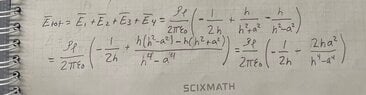 E̅tot = E̅1 + E̅2 + E̅3 + E̅4 = ρℓ/2πε0 (-1/2h + h/h²+a² - h/h²-a²)
= ρℓ/2πε0 (-1/2h + h(h²-a²)-h(h²+a²)/h⁴-a⁴) = ρℓ/2πε0 (-1/2h - 2ha²/h⁴-a⁴)
SCIXMATH